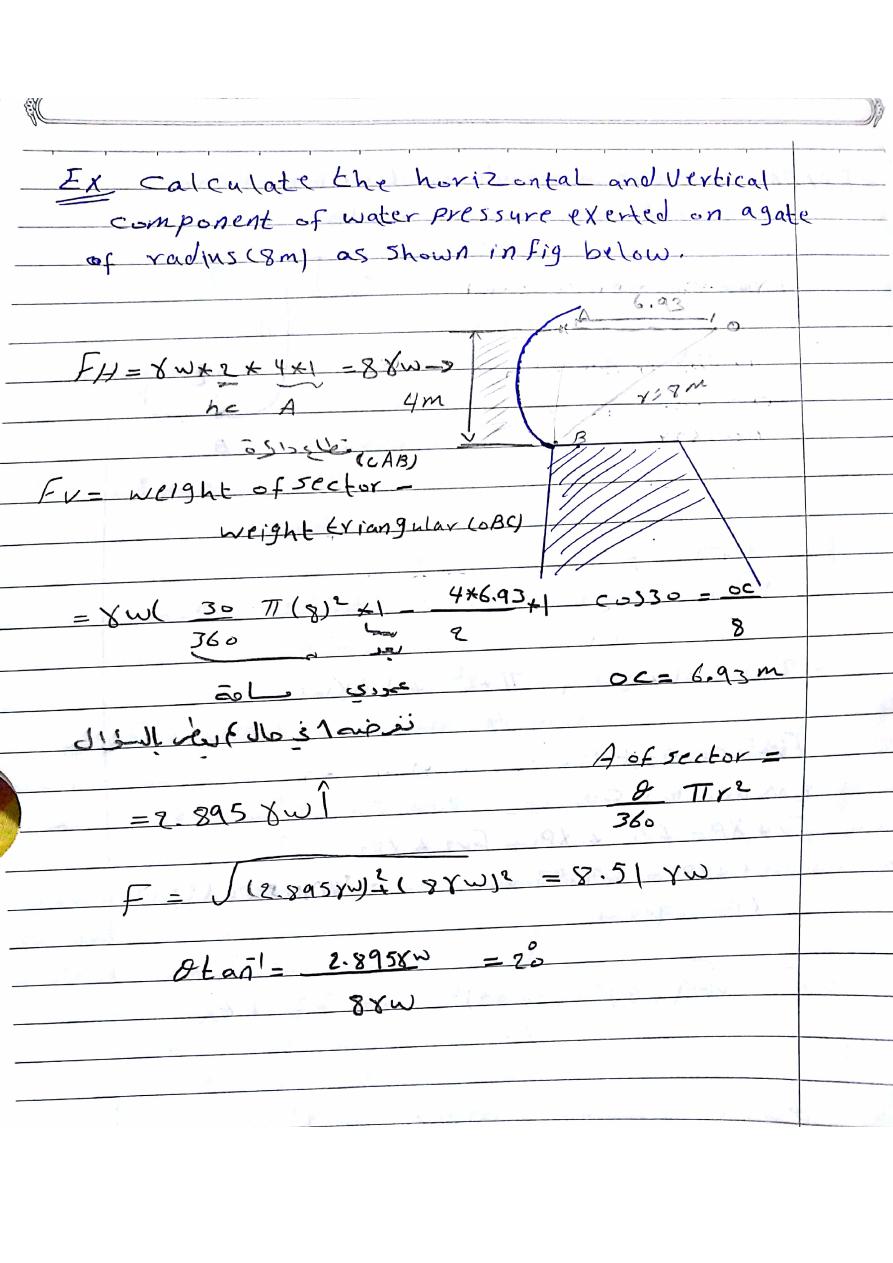 Ex Calculate the horizontal and vertical
component of water pressure exerted on a gate
of radius (8m) as shown in fig below.
6.93
A
O
FH = γw * 2 * 4*1 = 8γw →
hc A
4m
r=8m
B
قطاع دائرة
(CAB)
Fv = weight of sector -
weight triangular (OBC)
= γw( 30/360 π(8)² *1 - 4*6.93/2 *1
cos30 = oc/8
بعد
عمودي
مساحة
oc = 6.93m
نفرضه 1 في حال لم يعطى بالسؤال
A of sector =
θ/360 πr²
= 2.895 γw ↑
F = √(2.895γw)² + (8γw)² = 8.51 γw
θ tan⁻¹ = 2.895γw/8γw = 20°